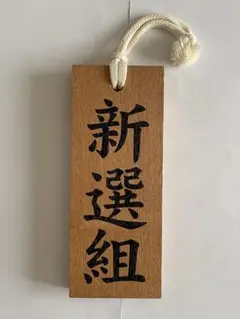 新選組